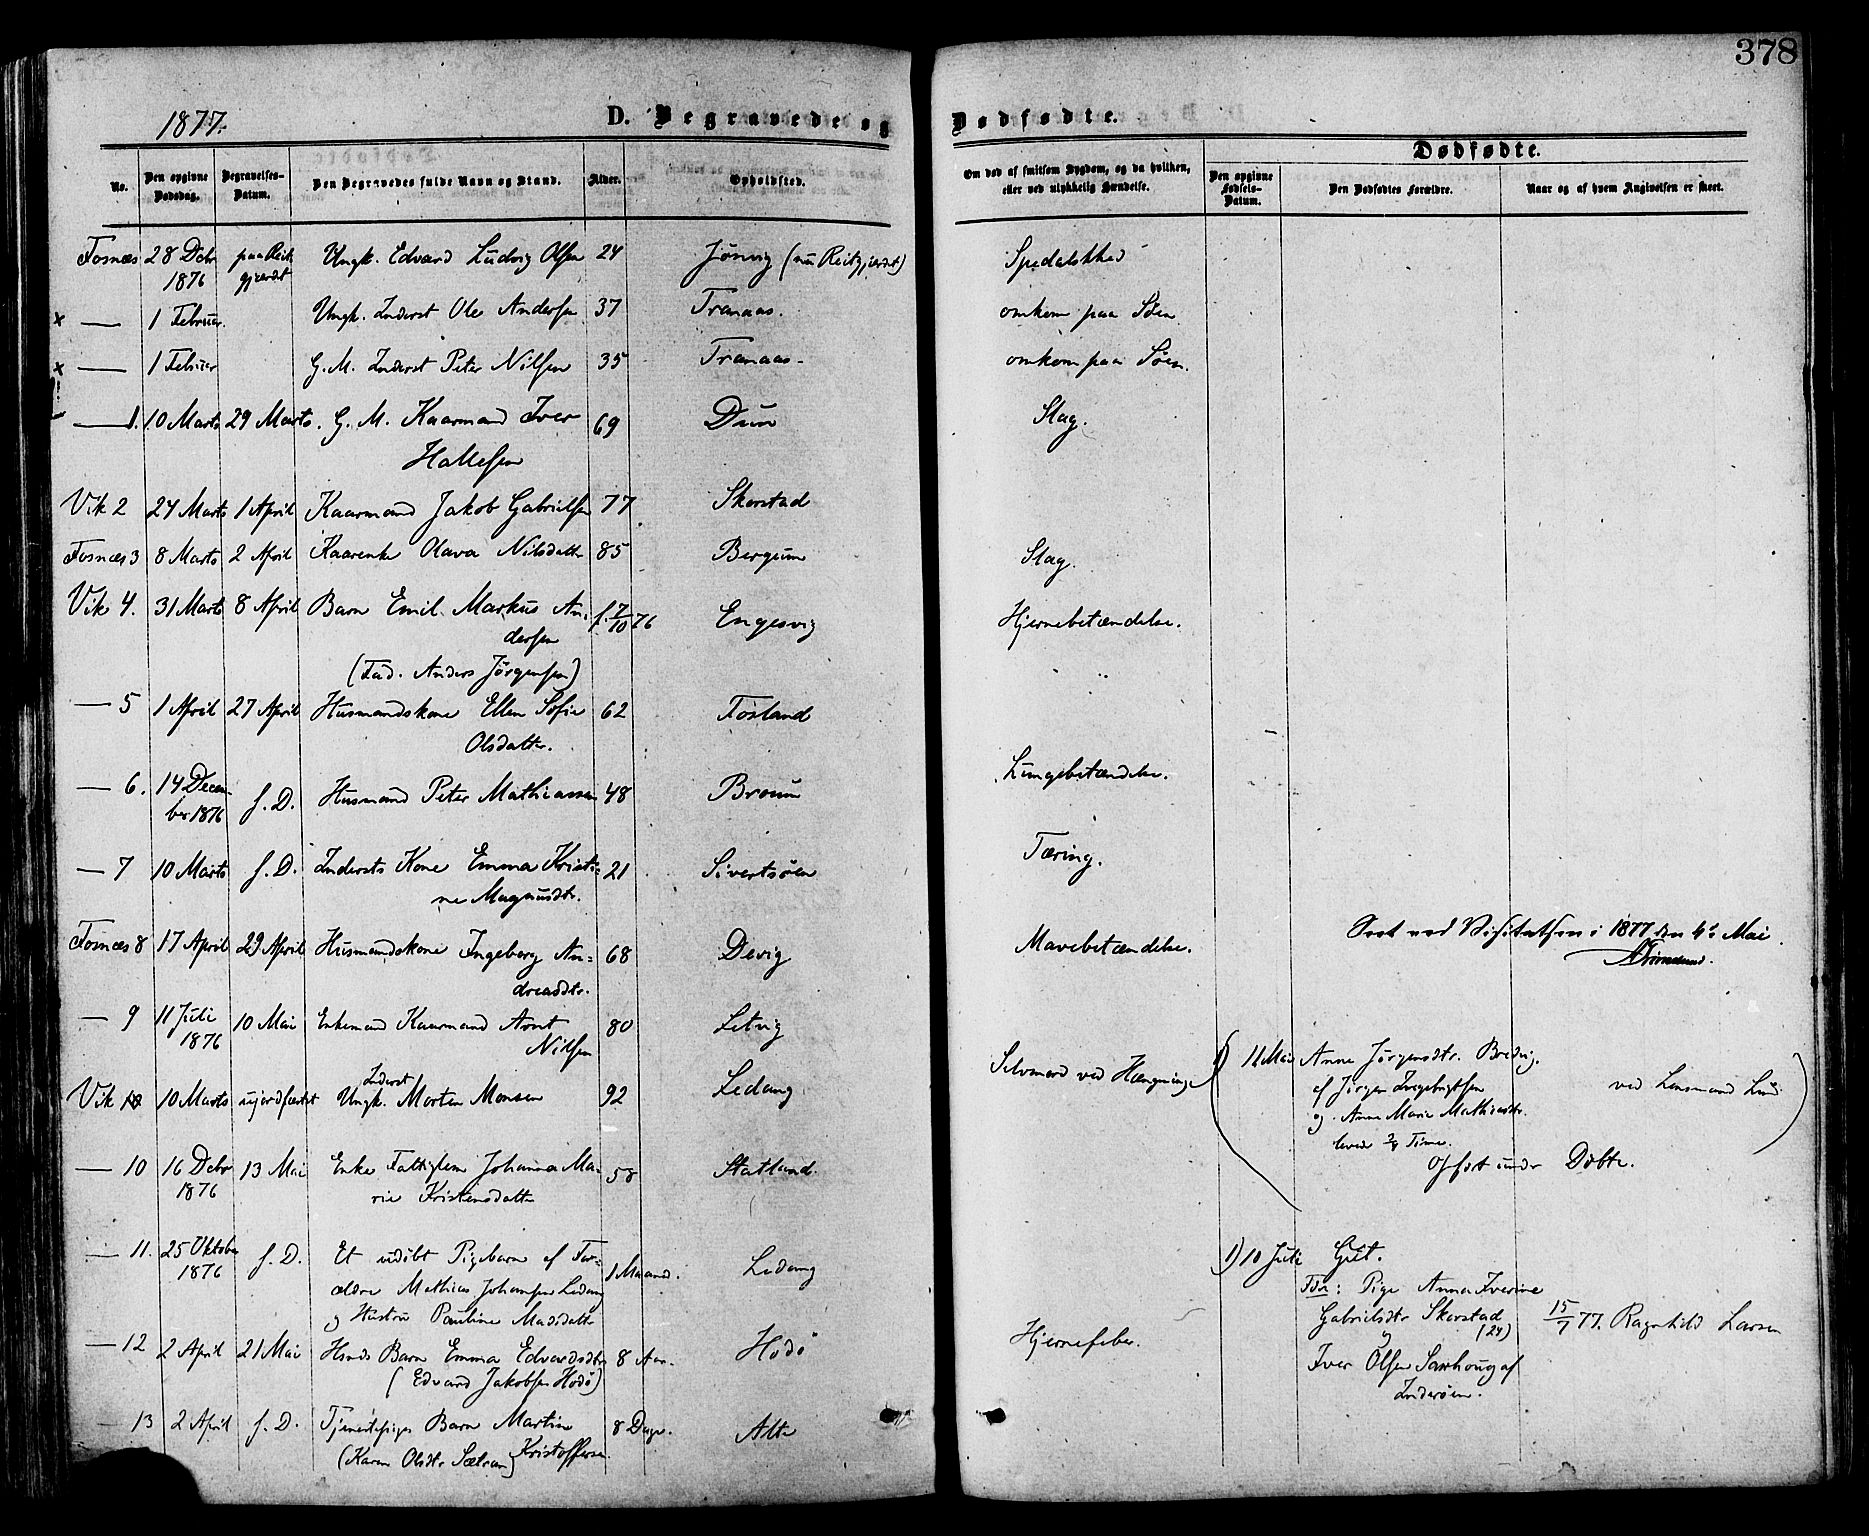 378
1877.
D. Begravede og Dødfødte.
No.
Den opgivne Dødsdag.
Begravelses-Datum.
Den Begravedes fulde Navn og Stand.
Alder.
Opholdsted.
Om død af smitsom Sygdom, og da hvilken, eller ved ulykkelig Hændelse.
Dødfødte.
Den opgivne Fødsels-Datum.
Den Dødfødtes Forældre.
Naar og af hvem Angivelsen er skeet.
Fosnæs 28 Debr paa Reit Ungk. Edvard Ludvig Olsen 24 Jönvig (nu Reitgjærdet) Spedalskhed
1876 gjærdet
x — 1 Februar Ungk. Inderst Ole Andersen 37 Tranaas. omkom paa Söen
x — 1 Februar G. M. Inderst Peter Nilsen 35 Tranaas. omkom paa Söen.
— 1. 10 Marts 29 Marts. G. M. Kaarmand Iver 69 Dun Slag.
Hallesen
Vik 2 24 Marts 1 April Kaarmand Jakob Gabrielsen 77 Skorstad
Fosnæs 3 8 Marts 2 April Kaarenke Olava Nilsdatter 85 Bergum Slag.
Vik 4. 31 Marts 8 April Barn Emil Markus An- f. 7/10 76 Engesvig Hjernebetændelse.
dersen
(Fad. Anders Jörgensen)
— 5 1 April 27 April Husmandskone Ellen Sofie 62 Fosland
Olsdatter.
— 6. 14 Decem- f. D. Husmand Peter Mathiassen 48 Braum Lungebetændelse.
ber 1876
— 7 10 Marts f. D. Indersts Kone Emma Kristi- 21 Sivertsöen Tæring.
ne Magnusdtr.
Fosnæs 8 17 April 29 April Husmandskone Ingeberg An- 68 Devig Mavebetændelse.
dreasdtr.
Seet ved Visitatsen i 1877 den 4de Mai.
— 9 11 Juli 10 Mai Enkemand Kaarmand Arnt 80 Letvig
1876 Nilsen
Vik 10 10 Marts ujordfæstet Ungk. Inderst Morten Monsen 92 Ledang Selvmord ved Hængning
(11 Mai Anne Jörgensdtr. Bredvig.
af Jörgen Ingebrigtsen ved Lensmand Lund)
og Anne Marie Mathiasdtr.
levede 3/4 Time.
Opfört under Döbte.
— 10 16 Debr 13 Mai Enke Fattiglem Johanna Ma- 58 Statland.
1876 rie Kristensdatter
— 11. 25 Oktober f. D. Et udöbt Pigebarn af For- 1 Maaned. Ledang
1876 ældre Mathias Johansen Ledang
og Hustru Pauline Masidatter
1) 10 Juli Gut.
Fdre: Pige Anna Iverine
Gabrielsdtr Skorstad 15/7 77. Ragnhild Larsen
(24)
og
Iver Olsen Saxhoug af
Inderöen.
— 12 2 April 21 Mai Hmds Barn Emma Edvardsdtr 8 Aar. Hodö Hjernefeber.
(Edvard Jakobsen Hodö)
— 13 2 April f. D. Tjenestepiges Barn Martin 8 Dage. Alte
(Karen Olsdtr Sætran) Kristoffersen